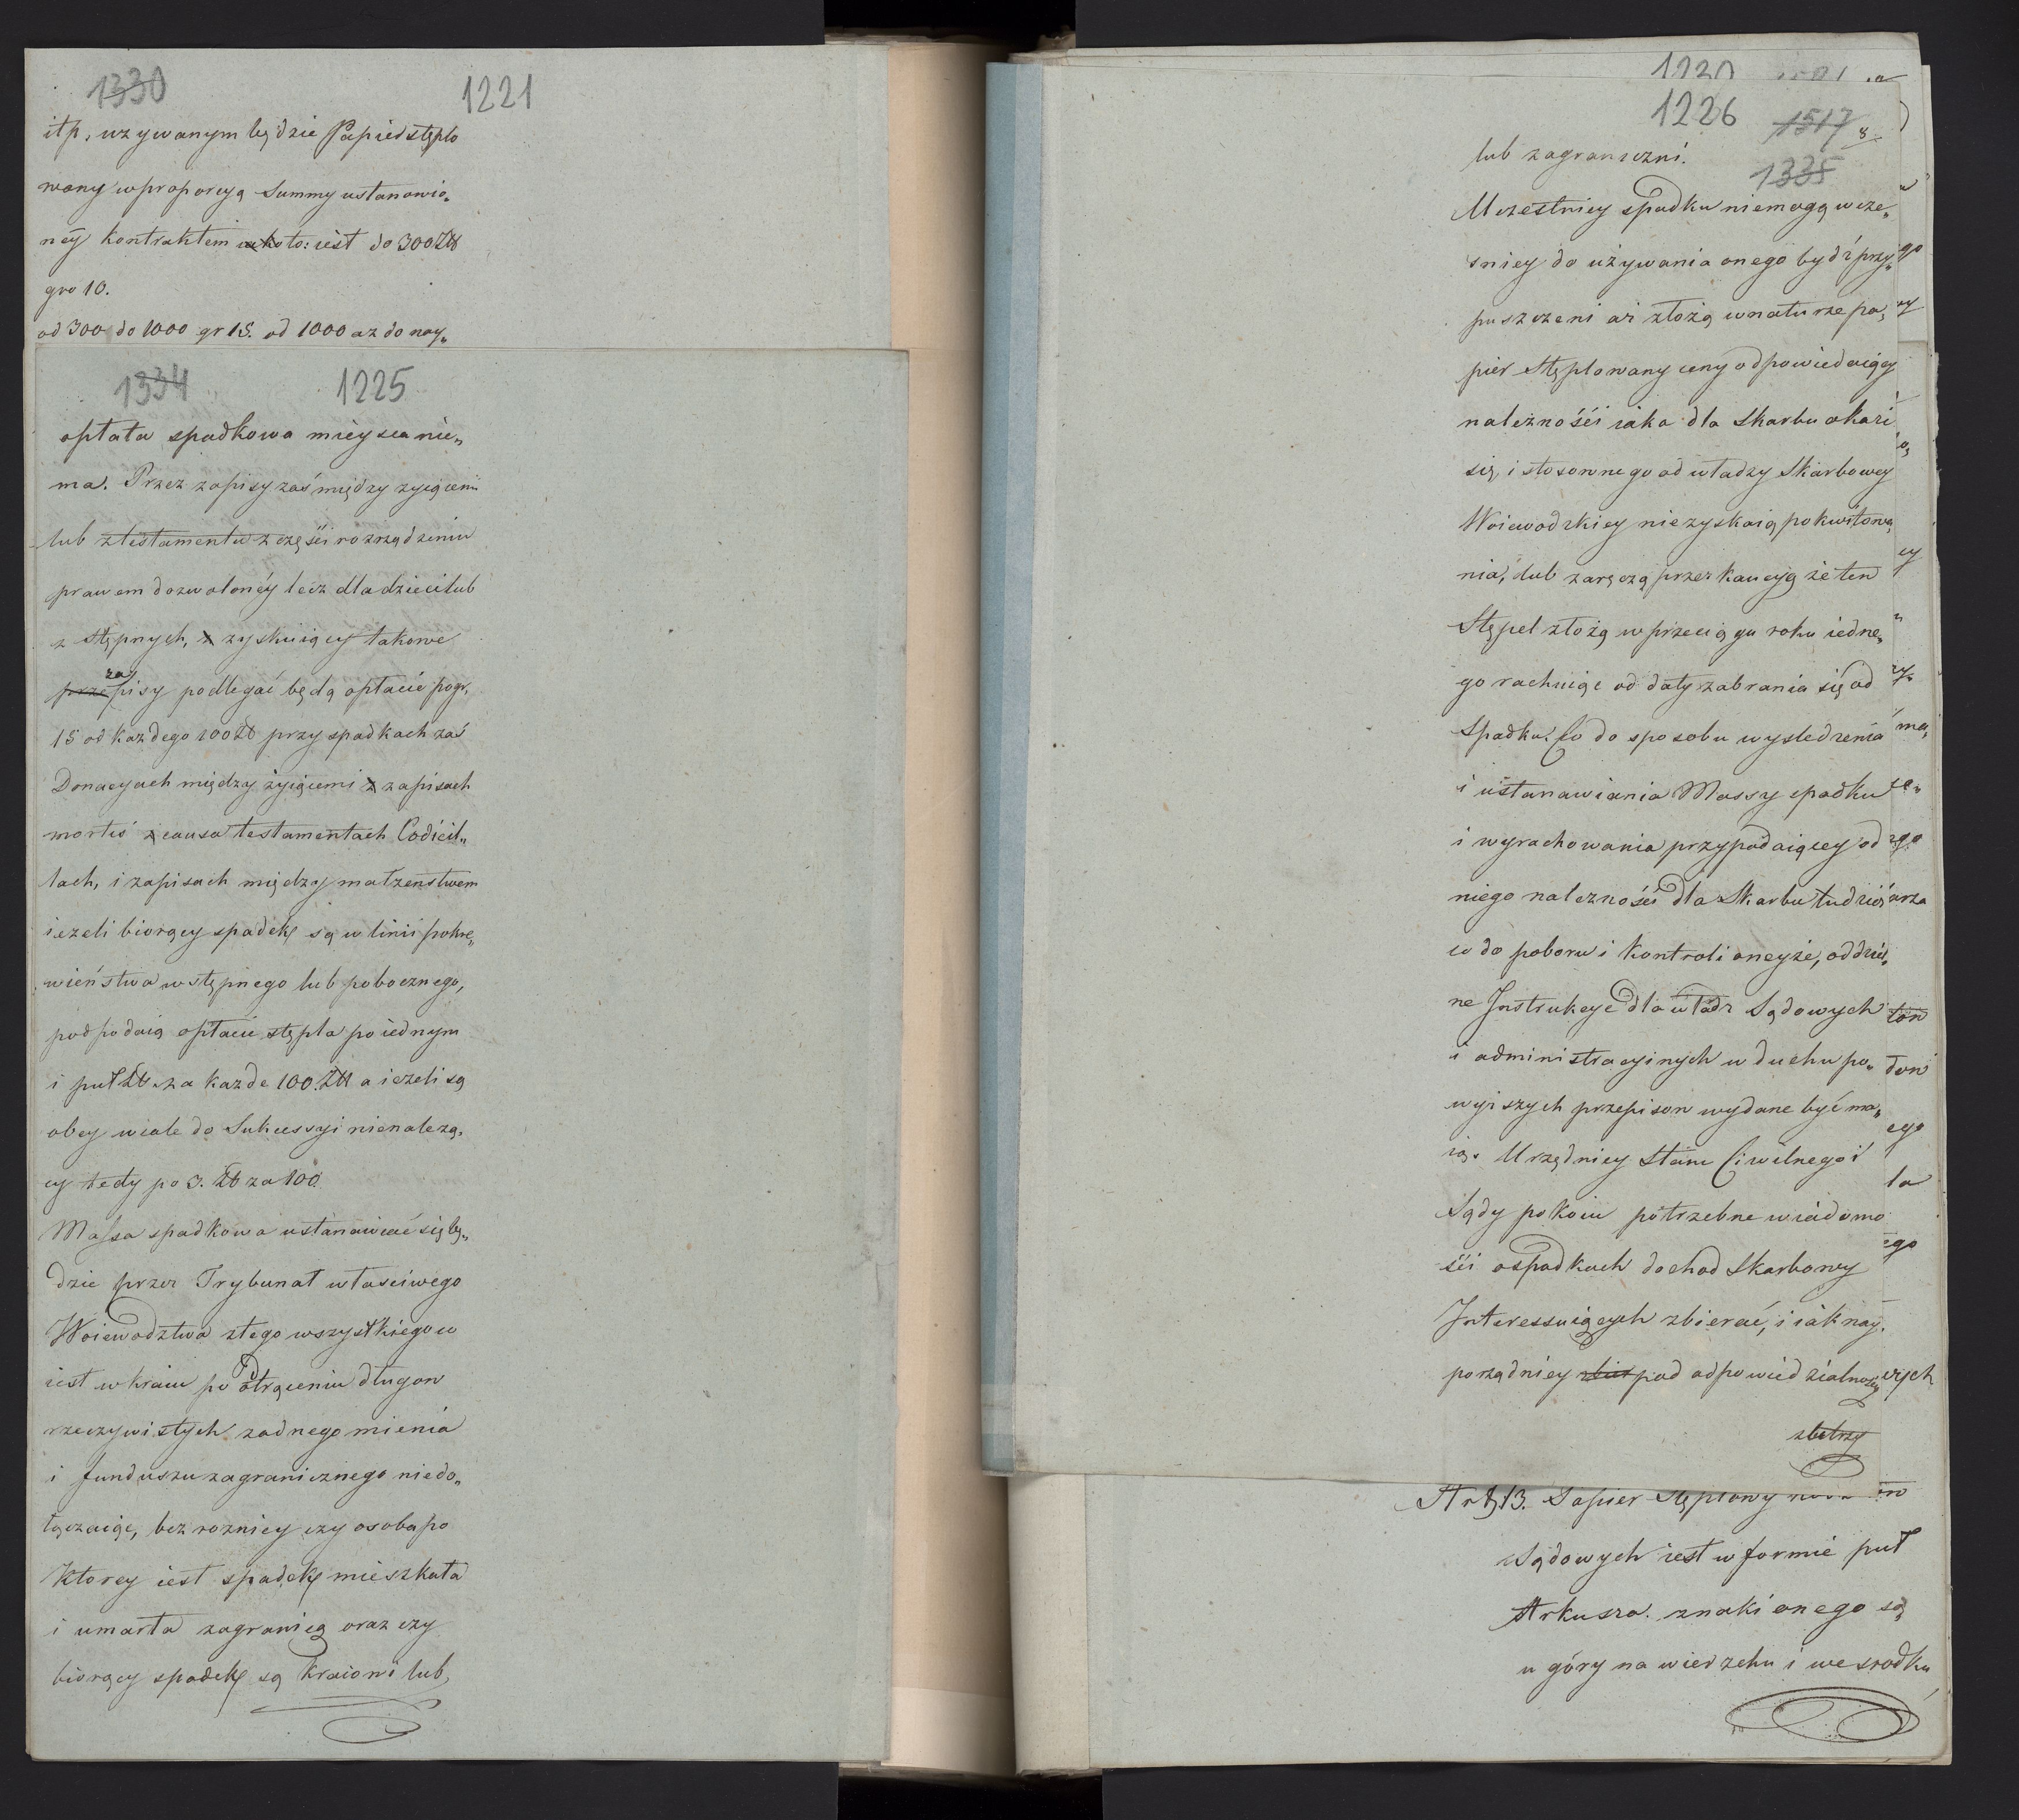 1330 1221
itp, używanym będzie Papier stęplo
wany wproporcyą Summy ustanowio„
néy kontraktem to: iest do 300 Zł
gro 10.
od 300 do 1000 gr 15. od 1000 aż do nay„
1334 1225
opłata spadkowa mieysca nie„
ma. Przez zapisy zaś między zyiącemi
lub ztestamentu z części rozrządzeniu
prawem dozwolonéy lecz dla dzieci lub
z stępnych, zyskuiący takowe
przepisy za podlegać będą opłacie po gr,
15 od każdego 100 Zł przy spadkach zaś
Donacyach między żyiącemi zapisach
mortis causa testamentach Codicil„
lach, i zapisach między małżeństwem
ieżeli biorący spadek są w linii pokre„
wieństwa wstępnego lub pobocznego,
podpadaią opłacie stępla po iednym
i puł Zł. za każde 100. Zł a ieżeli są
obcy wcale do Sukcessyi nienależą„
cy tedy po 3. Zł za 100
Massa spadkowa ustanawiać się bę„
dzie przez Trybunał właściwego
Woiewodztwa ztego wszystkiego co
iest w kraiu po otrąceniu długow
rzeczywistych żadnego mienia
i funduszu zagranicznego niedo„
łączaiąc, bez roznicy czy osoba po
ktorey iest spadek mieszkała
i umarła zagranicą oraz czy
biorący spadek są kraiowi lub,
1220
1226 1517
lub zagraniczni.
1335
Uczestnicy spadku niemogą wcze„
sniey do używania onego bydź przy„
puszczeni aż złożą wnaturze pa„
pier stęplowany ceny odpowiedaiącey
należności iaka dla Skarbu okaże
się, i stosownego od władzy Skarbowey
Woiewodzkiey niezyskaią pokwitowa„
nia, lub zaręczą przez kaucyą że ten
Stępel złożą w przeciągu roku iedne„
go rachuiąc od daty zabrania się od
Spadku. Co do sposobu wysledzenia
i ustanawiania Massy spadku
i wyrachowania przypadaiącey od
niego należności dla Skarbu tudzież
co do poboru i kontroli oneyże, oddziel„
ne Instrukcye dla władz Sądowych
i administracyinych w duchu po„
wyższych przepisow wydane być ma„
ią. Urzędnicy Stanu Ciwilnego i
Sądy pokoiu potrzebne wiadomo
ści ospadkach dochod Skarbowy
Interessuiących zbierać, i iak nay„
porządniey pod odpowiedzialnością
Art 13. Papier stęplowy
Sądowych iest w formie puł
Arkusza. znaki onego są
u góry na wierzchu i we srodku